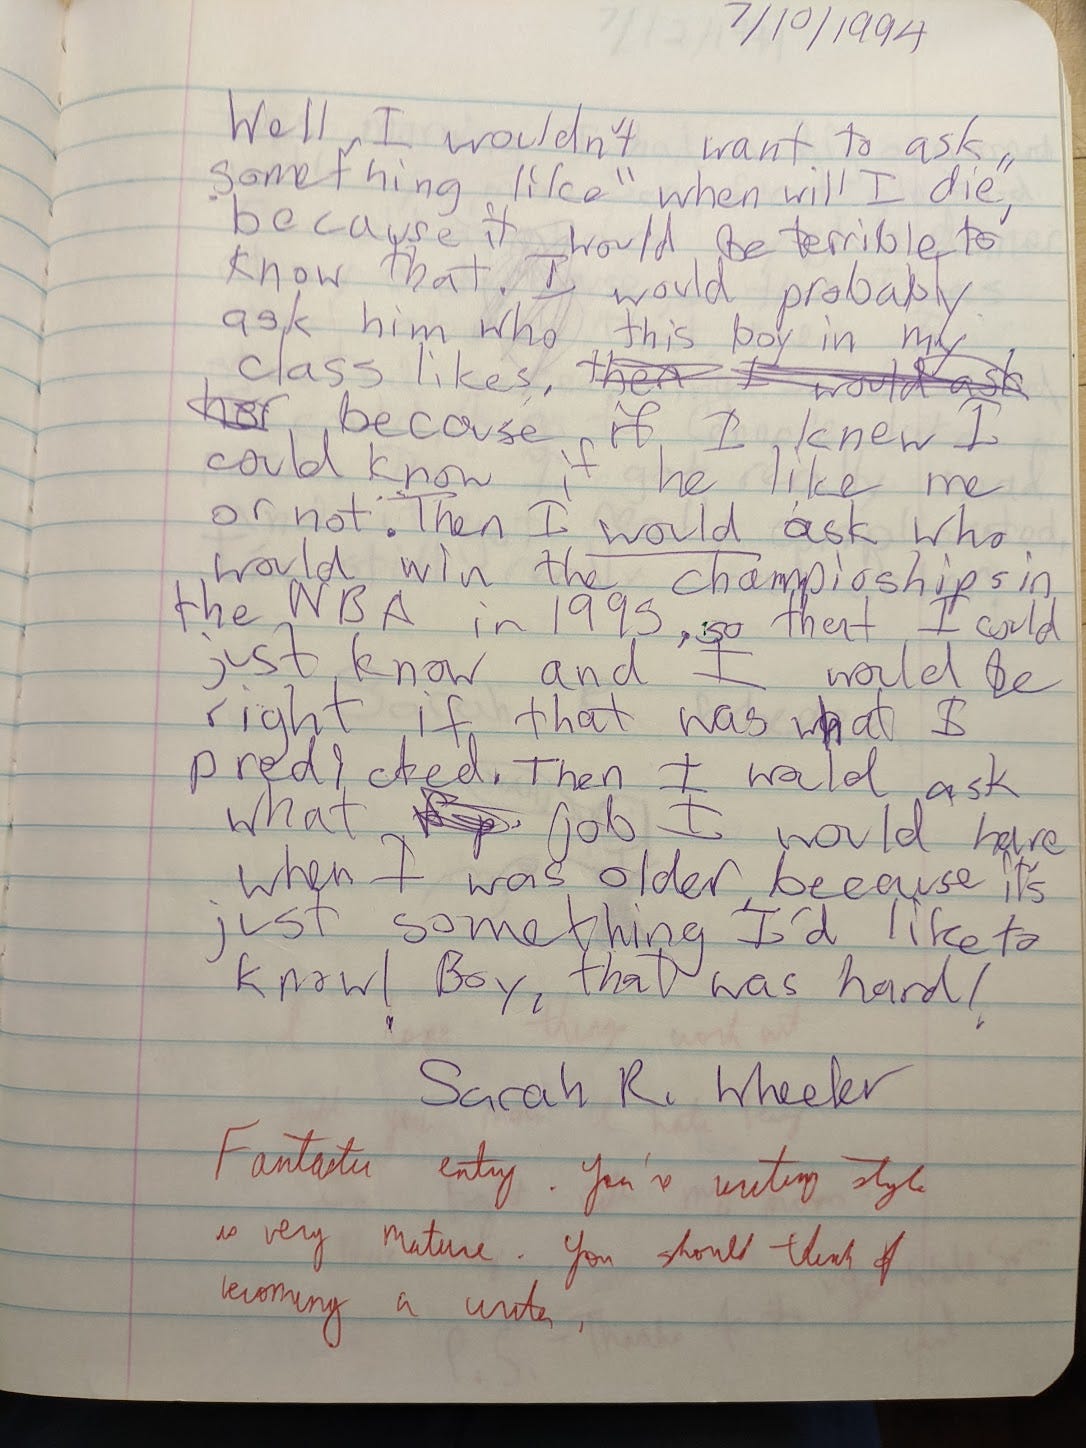 7/10/1994
Well, I wouldn't want to ask
something like "when will I die",
because it would be terrible to
know that. I would probably
ask him who this boy in my
class likes, then I would ask
her because if I knew I
could know if he like me
or not. Then I would ask who
would win the champioships in
the NBA in 1995, so that I could
just know and I would be
right if that was what I
predicted. Then I would ask
what job I would have
when I was older, because it's
just something I'd like to
know! Boy, that was hard!
Sarah R. Wheeler
Fantastic entry. You're writing style
is very mature. You should think of
becoming a writer.